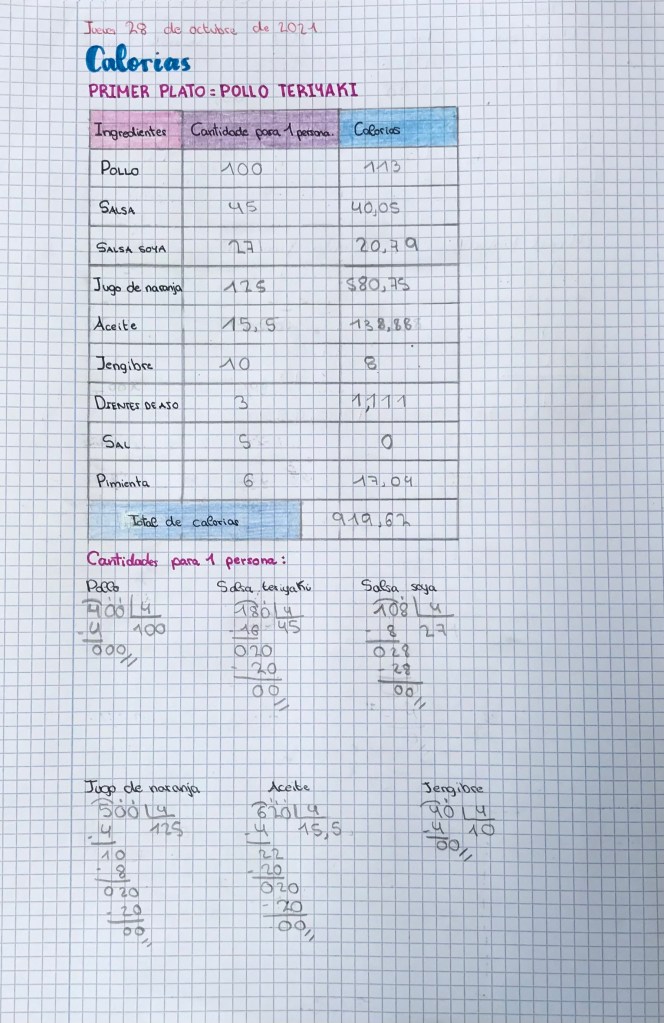 Jueves 28 de octubre de 2021
Calorias
PRIMER PLATO: POLLO TERIYAKI
Ingredientes Cantidade para 1 persona. Calorias
POLLO 100 113
SALSA 45 40,05
SALSA SOYA 27 20,79
Jugo de naranja 125 580,75
Aceite 15,5 138,88
Jengibre 10 8
DIENTES DE AJO 3 1,111
SAL 5 0
Pimienta 6 17,04
Total de calorias 919,62
Cantidades para 1 persona:
Pollo Salsa teriyaki Salsa soya
400 4 180 4 108 4
-4 100 -16 45 -8 27
000 020 028
-20 -28
00 00
Jugo de naranja Aceite Jengibre
500 4 620 4 40 4
-4 125 -4 15,5 -4 10
10 22 00
-8 -20
020 020
-20 -20
00 00